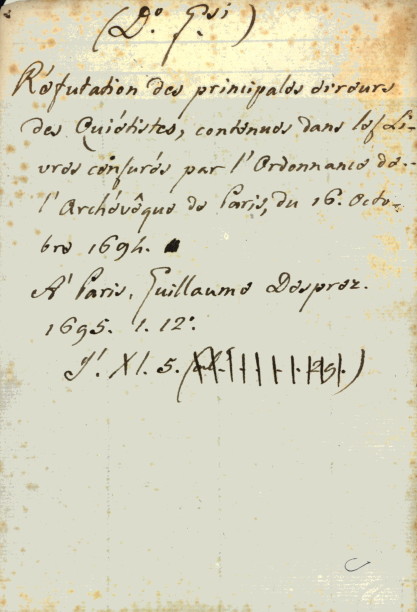 (D.º G.si)
Réfutation des principales erreurs
des Quiétistes, contenues dans les Li-
vres censurés par l'Ordonnance de
l'Archévêque de Paris, du 16. Octo-
bre 1694.
A' Paris, Guillaume Desprez.
1695. 1. 12º.
J'. XI. 5.